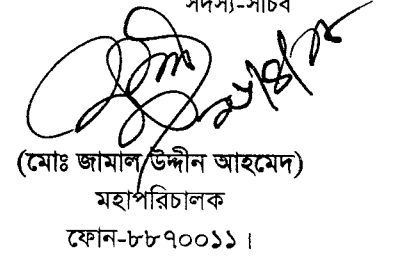 সদস্য-সচিব
(মোঃ জামাল উদ্দীন আহমেদ)
মহাপরিচালক
ফোন-৮৮৭০০১১।